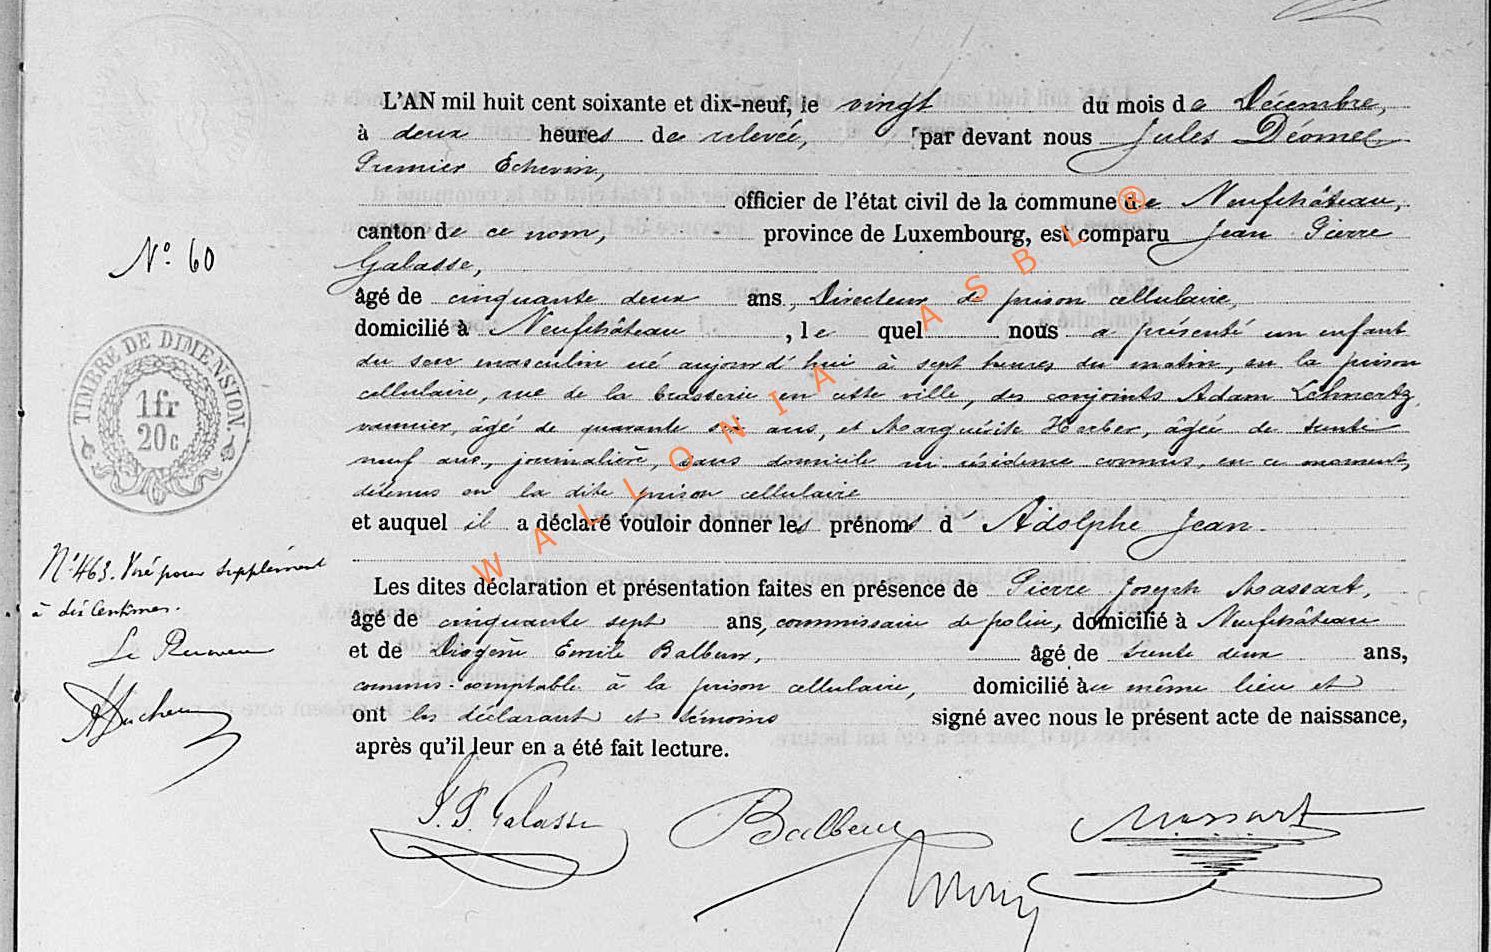 L'AN mil huit cent soixante et dix-neuf, le vingt du mois de Décembre,
à deux heures de relevée, par devant nous Jules Déome
Premier Echevin,
officier de l'état civil de la commune de Neufchâteau,
canton de ce nom, province de Luxembourg, est comparu Jean Pierre
N° 60
Galasse,
âgé de cinquante deux ans, Directeur de prison cellulaire,
domicilié à Neufchâteau, le quel nous a présenté un enfant
du sexe masculin né aujourd'hui à sept heures du matin, en la prison
cellulaire, rue de la brasserie en cette ville, des conjoints Adam Lehnertz,
vannier, âgé de quarante six ans, et Marguérite Herber, âgée de trente
neuf ans, journalière, sans domicile ni résidence connus, en ce moment,
détenus en la dite prison cellulaire
TIMBRE DE DIMENSION
1fr
20c
et auquel il a déclaré vouloir donner les prénoms d' Adolphe Jean.
WALLONIA ASBL ®
N° 463. Visé pour supplément
à dix Centimes.
Le Receveur
Les dites déclaration et présentation faites en présence de Pierre Joseph Massart,
âgé de cinquante sept ans, commissaire de police, domicilié à Neufchâteau
et de Diogène Emile Balbeur, âgé de trente deux ans,
commis-comptable à la prison cellulaire, domicilié au même lieu et
ont les déclarant et témoins signé avec nous le présent acte de naissance,
après qu'il leur en a été fait lecture.
J. P. Galasse Balbeur Massart